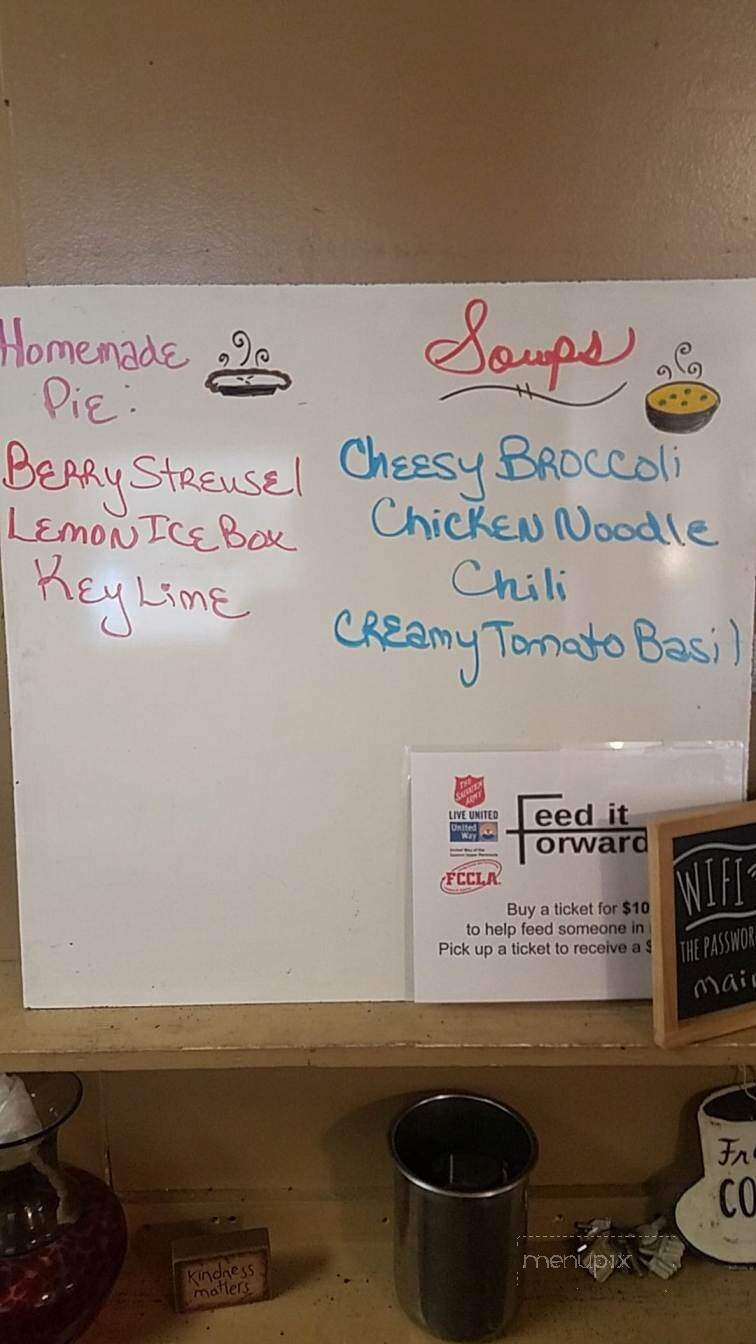 Homemade
Pie:
Berry Streusel
Lemon Ice Box
Key Lime
Soups
Cheesy Broccoli
Chicken Noodle
Chili
Creamy Tomato Basil
THE
SALVATION
ARMY
LIVE UNITED
United
Way
FCCLA
Feed it
Forward
Buy a ticket for $10
to help feed someone in
Pick up a ticket to receive a $
WIFI?
THE
Kindness
matters
menupix